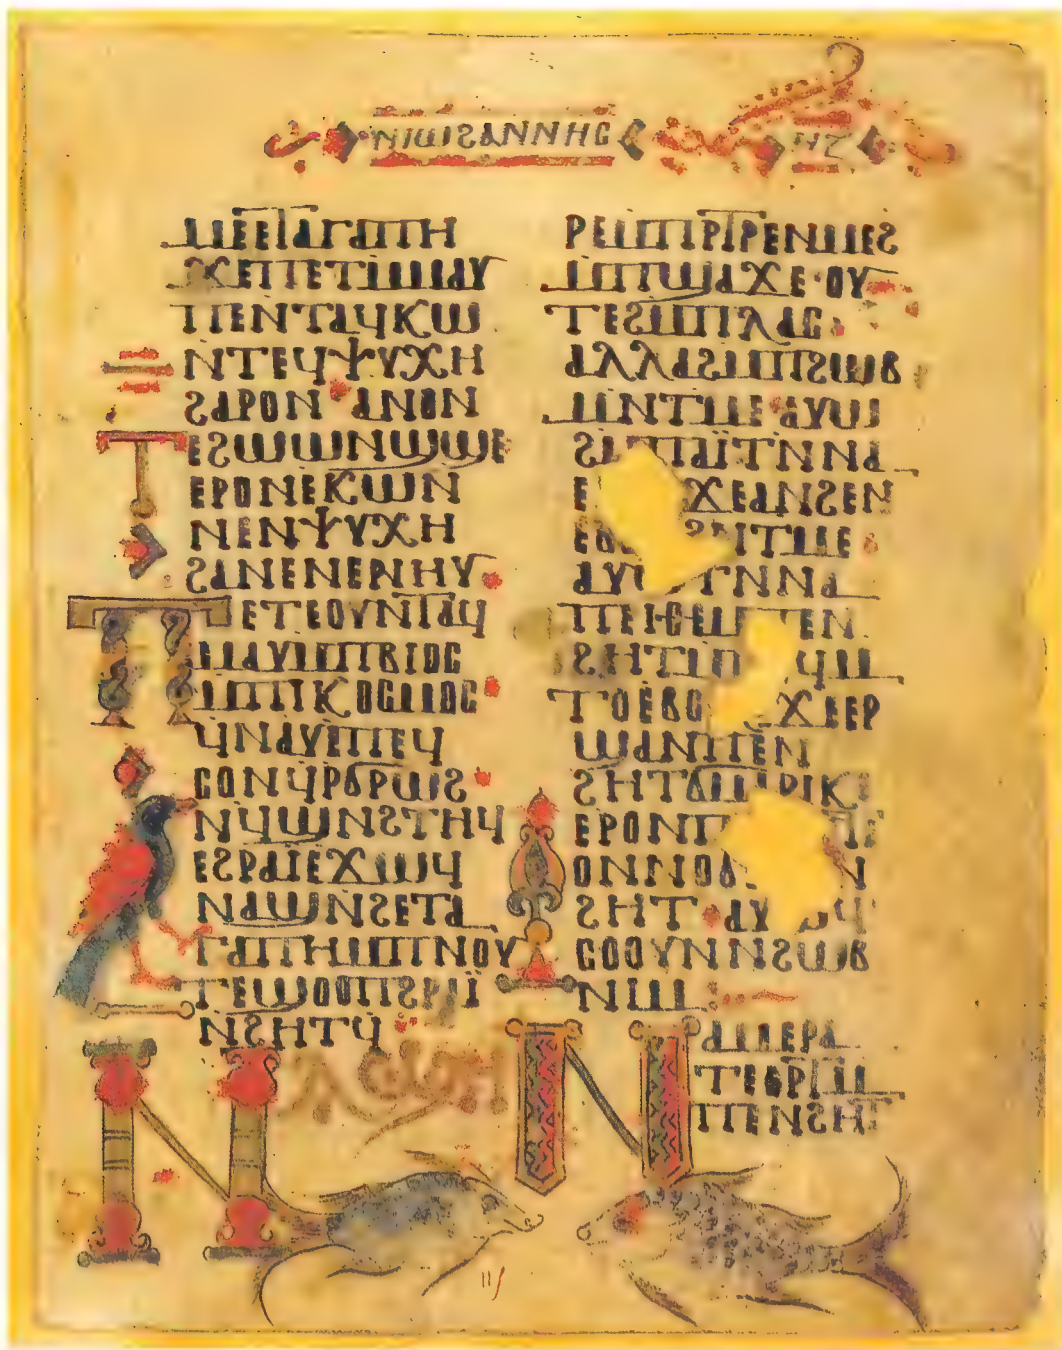 ⲛⲓⲱϩⲁⲛⲛⲏⲥ
ⲙⲉⲉⲧⲁⲅⲁⲡⲏ
ϫⲉⲡⲉⲧⲙⲙⲁⲩ
ⲡⲉⲛⲧⲁϥⲕⲱ
ⲛⲧⲉϥⲯⲩⲭⲏ
ϩⲁⲣⲟⲛ· ⲁⲛⲟⲛ
ⲧⲉϩⲱⲱⲛϣϣⲉ
ⲉⲣⲟⲛⲉⲕⲱⲛ
ⲛⲉⲛⲯⲩⲭⲏ
ϩⲁⲛⲉⲛⲉⲣⲏⲩ·
ⲡⲉⲧⲉⲟⲩⲛⲧⲁϥ
ⲙⲙⲁⲩⲙⲡⲃⲓⲟⲥ
ⲙⲡⲓⲕⲟⲥⲙⲟⲥ·
ϥⲛⲁⲩⲉⲡⲉϥ
ⲥⲟⲛϥⲣϭⲣⲱϩ·
ⲛϥϣⲛϩⲧⲏϥ
ⲉϩⲣⲁⲓⲉϫⲱϥ
ⲛⲁϣⲛϩⲉⲧⲁ
ⲅⲁⲡⲏⲙⲡⲛⲟⲩ
ⲧⲉϣⲟⲟⲡϩⲣⲁⲓ̈
ⲛϩⲏⲧϥ·
ⲛ
ⲣⲉⲙⲡⲣⲧⲣⲉⲛⲙⲉϩ
ⲙⲡϣⲁϫⲉ·ⲟⲩ
ⲧⲉϩⲙⲡⲗⲁⲥ·
ⲁⲗⲗⲁϩⲙⲡϩⲱⲃ
ⲙⲛⲧⲙⲉ·ⲁⲩⲱ
ϩⲙⲡⲁⲓ̈ⲧⲛⲛⲁ
ⲉ ϫⲉⲁⲛϩⲉⲛ
ⲉⲃ ϩⲛⲧⲙⲉ·
ⲁⲩⲱ ⲧⲛⲛⲁ
ⲡⲉⲓⲑⲉⲙ ⲉⲛ
ϩⲏⲧⲙⲡ ϥⲙ
ⲧⲟⲉⲃⲟ ϫⲉⲉⲣ
ϣⲁⲛⲡⲉⲛ
ϩⲏⲧϭⲙⲁⲣⲓⲕ
ⲉⲣⲟⲛⲡ
ⲟⲛⲛⲟϭ ⲛ
ϩⲏⲧ·ⲁⲩ ϥ
ⲥⲟⲟⲩⲛⲛϩⲱⲃ
ⲛⲓⲙ
ⲛⲁⲙⲉⲣⲁ
ⲡⲉⲛϩⲏⲧ